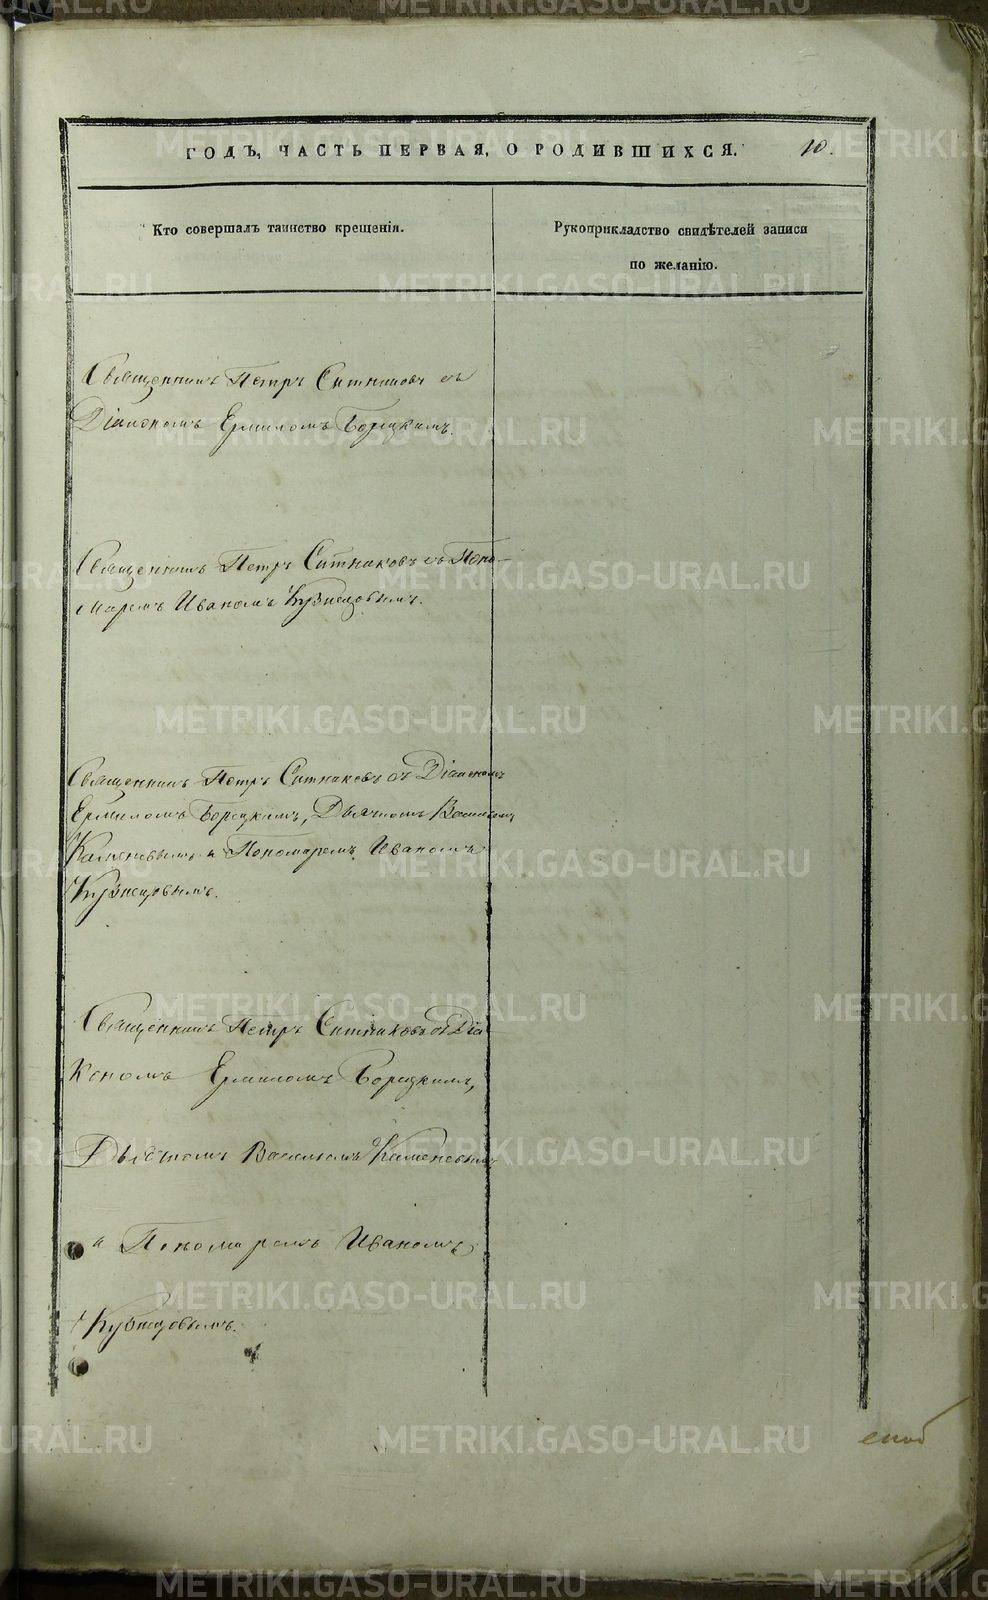 ГОДЪ, ЧАСТЬ ПЕРВАЯ, О РОДИВШИХСЯ. 10.
Кто совершалъ таинство крещенія.
Рукоприкладство свидѣтелей записи
по желанію.
Священникъ Петръ Ситниковъ съ
Діакономъ Ермиломъ Борецкимъ.
Священникъ Петръ Ситниковъ съ Поно-
маремъ Иваномъ Кузнецовымъ.
Священникъ Петръ Ситниковъ съ Діакономъ
Ермиломъ Борецкимъ, Дьячкомъ Васильемъ
Каменевымъ и Пономаремъ Иваномъ
Кузнецовымъ.
Священникъ Петръ Ситниковъ съ Діа
кономъ Ермиломъ Борецкимъ,
Дьячкомъ Васильемъ Каменевымъ
и Пономаремъ Иваномъ
Кузнецовымъ.
METRIKI.GASO-URAL.RU